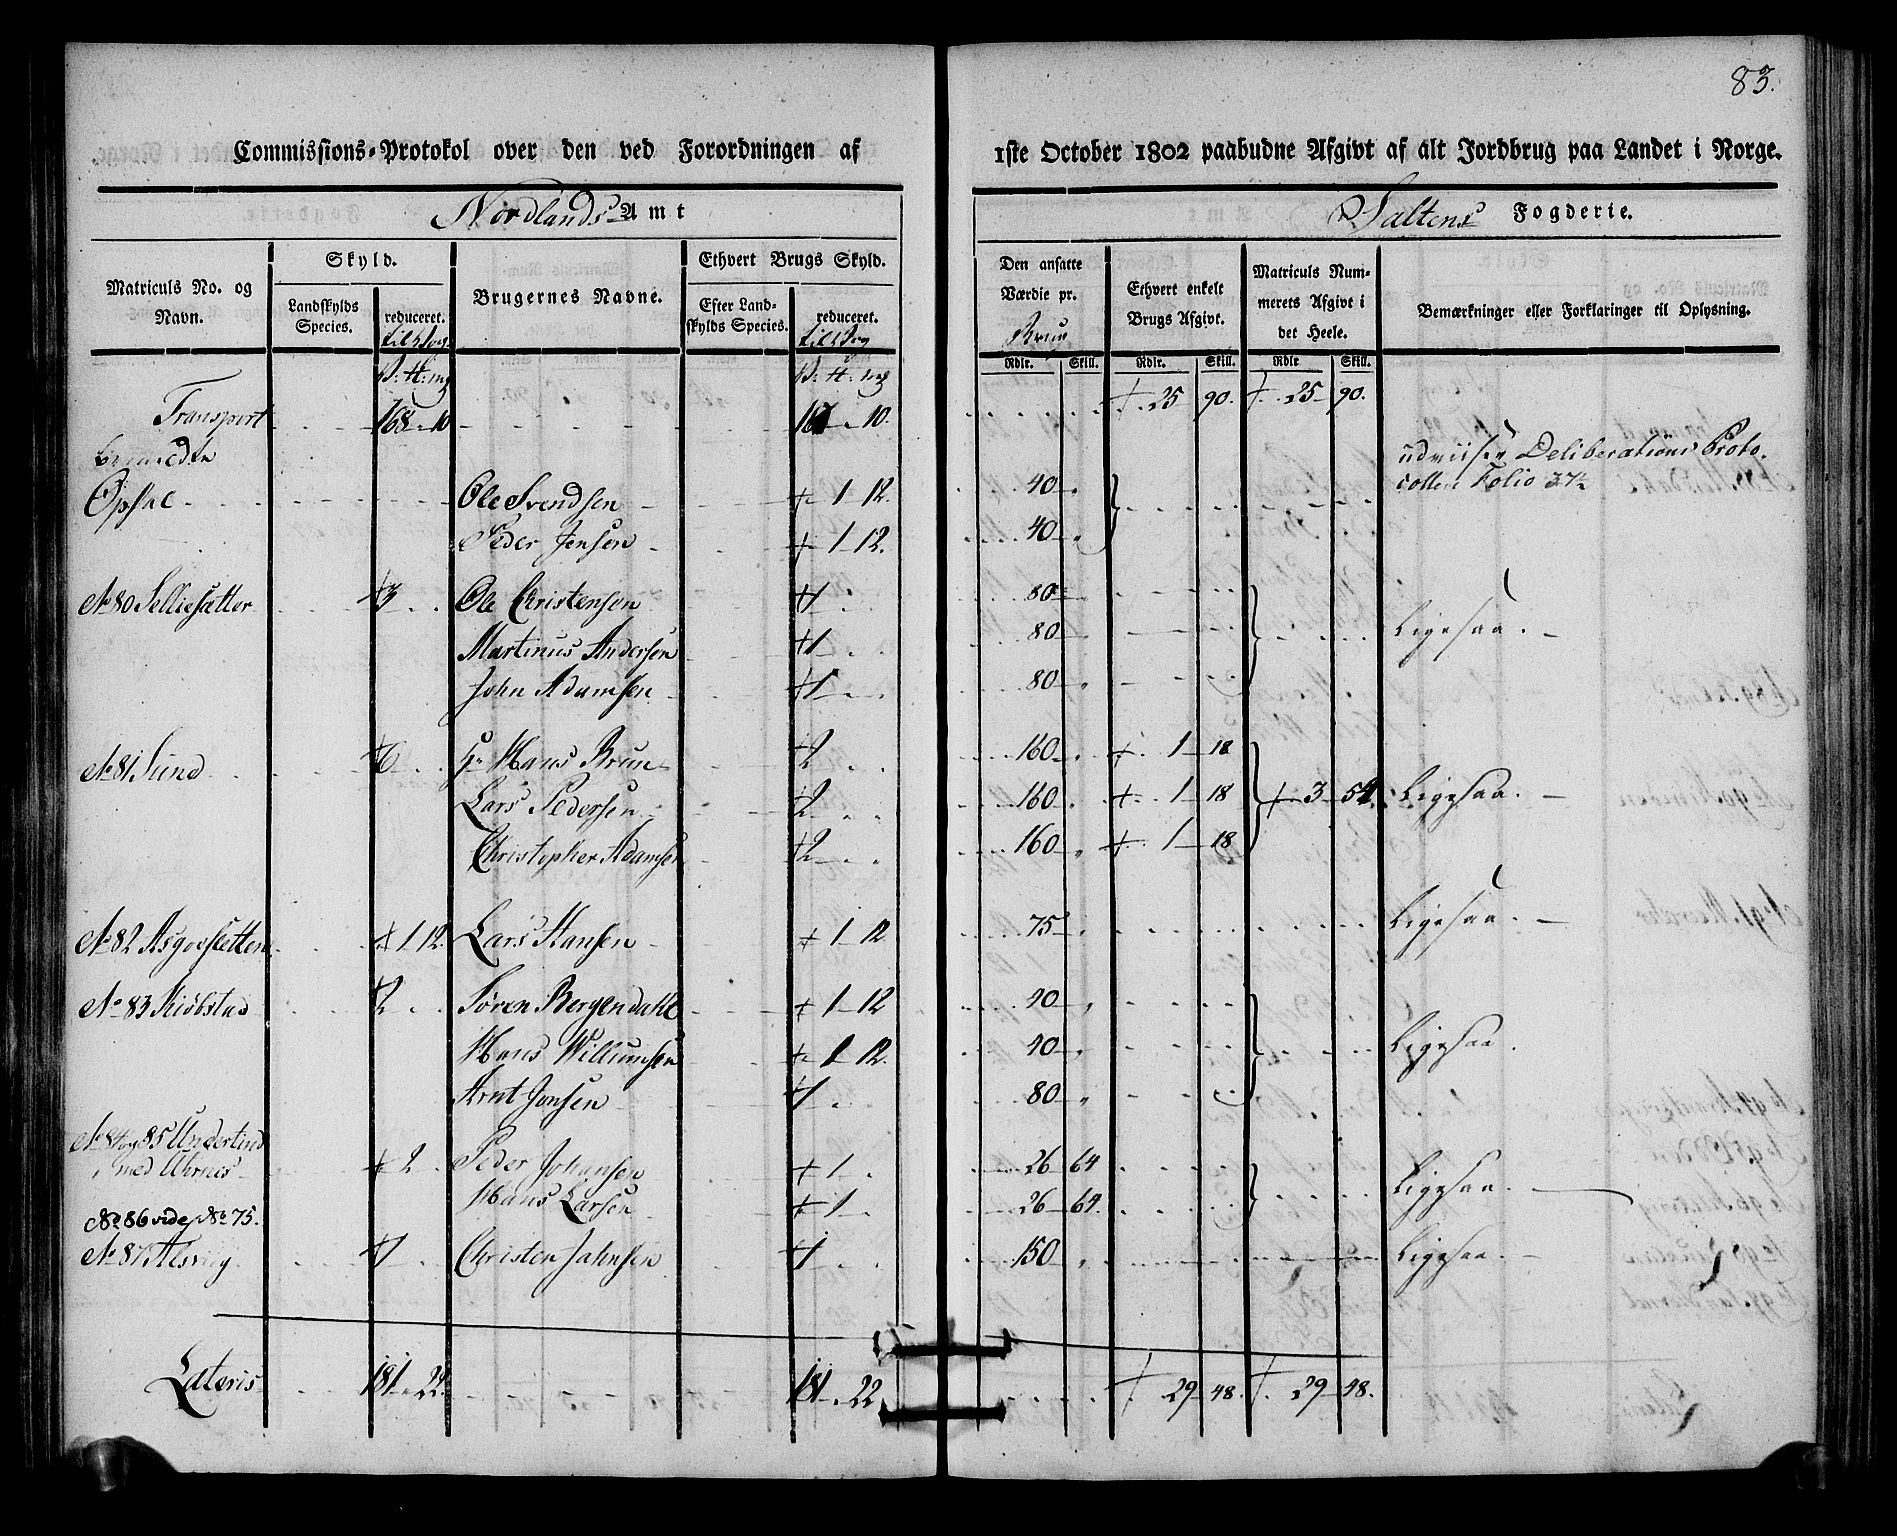 83.
Commissions-Protokol over den ved Forordningen af 1ste October 1802 paabudne Afgivt af alt Jordbrug paa Landet i Norge.
Nordlands Amt Saltens Fogderie.
Matriculs No. og Navn.
Skyld.
Landskylds Species.
reduceret.
Brugernes Navne.
Ethvert Brugs Skyld.
Efter Landskylds Species.
reduceret.
Den ansatte Værdie pr. Brug
Ethvert enkelt Brugs Afgivt.
Matriculs Nummerets Afgivt i det Heele.
Bemærkninger eller Forklaringer til Oplysning.
Rdlr. Skill. Rdlr. Skill. Rdlr Skill.
Transport 168 - 10 - 10. 25 90. 25 90.
udviiser Deliberations Proto-
collen Folio 37½
Opsal Ole Svendsen 1 12. 40
Peder Jensen 1 12. 40
No 80 Selliesætter 3 Ole Christensen 1 80
Martinus Andersen 1 80 Ligesaa.
John Adamsen 1 80
No 81 Sund 6 Hr Hans Brun 2 160 1 18
Lars Pedersen 2 160 1 18 3 54. Ligesaa.
Christopher Adamsen 2 160 1 18
No 82 1 12. Lars Hansen 1 12 75 Ligesaa.
No 83 Kiøbstad 2 Søren Bergendahl 1 12 40
Hans Willumsen 1 12. 40 Ligesaa.
Arnt Jonsen 1 80
No 84 og 85 Understind
med 2 Peder Johansen 1 26 64 Ligesaa.
Hans Larsen 1 26 64.
No 86 vide No 75.
No 87 Alsvig 1 Christen Jahnsen 1 150 Ligesaa.
Lateris 181 - 22. 181 - 22 29 48. 29 48.